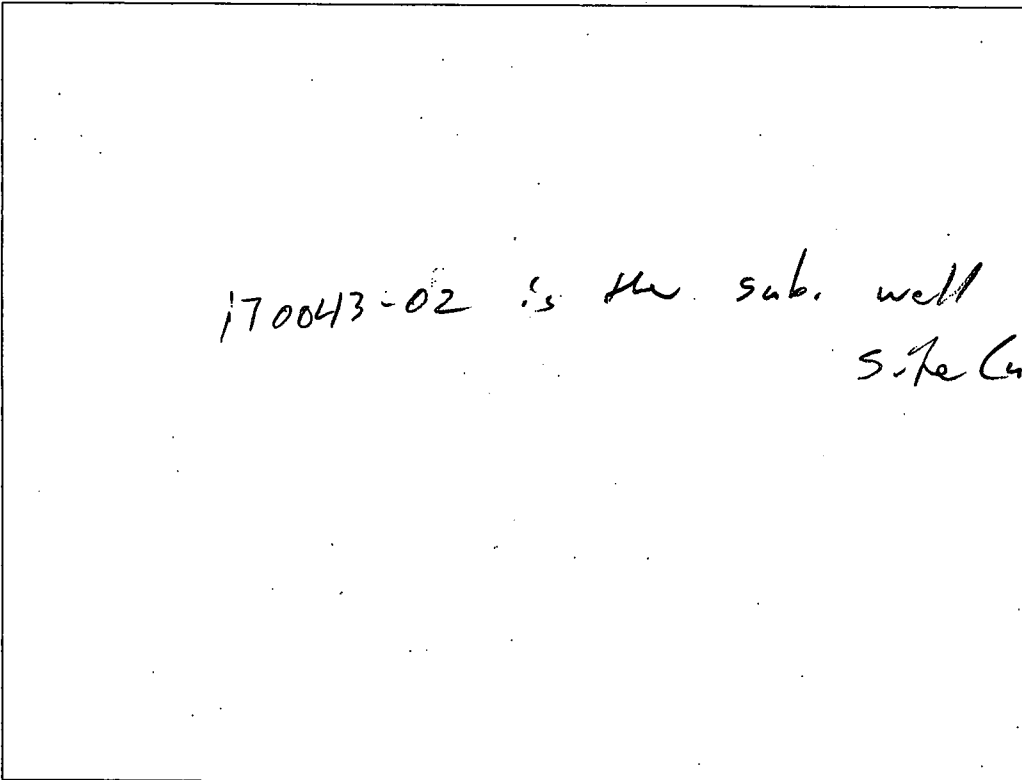 170043-02 is the sub. well
Site